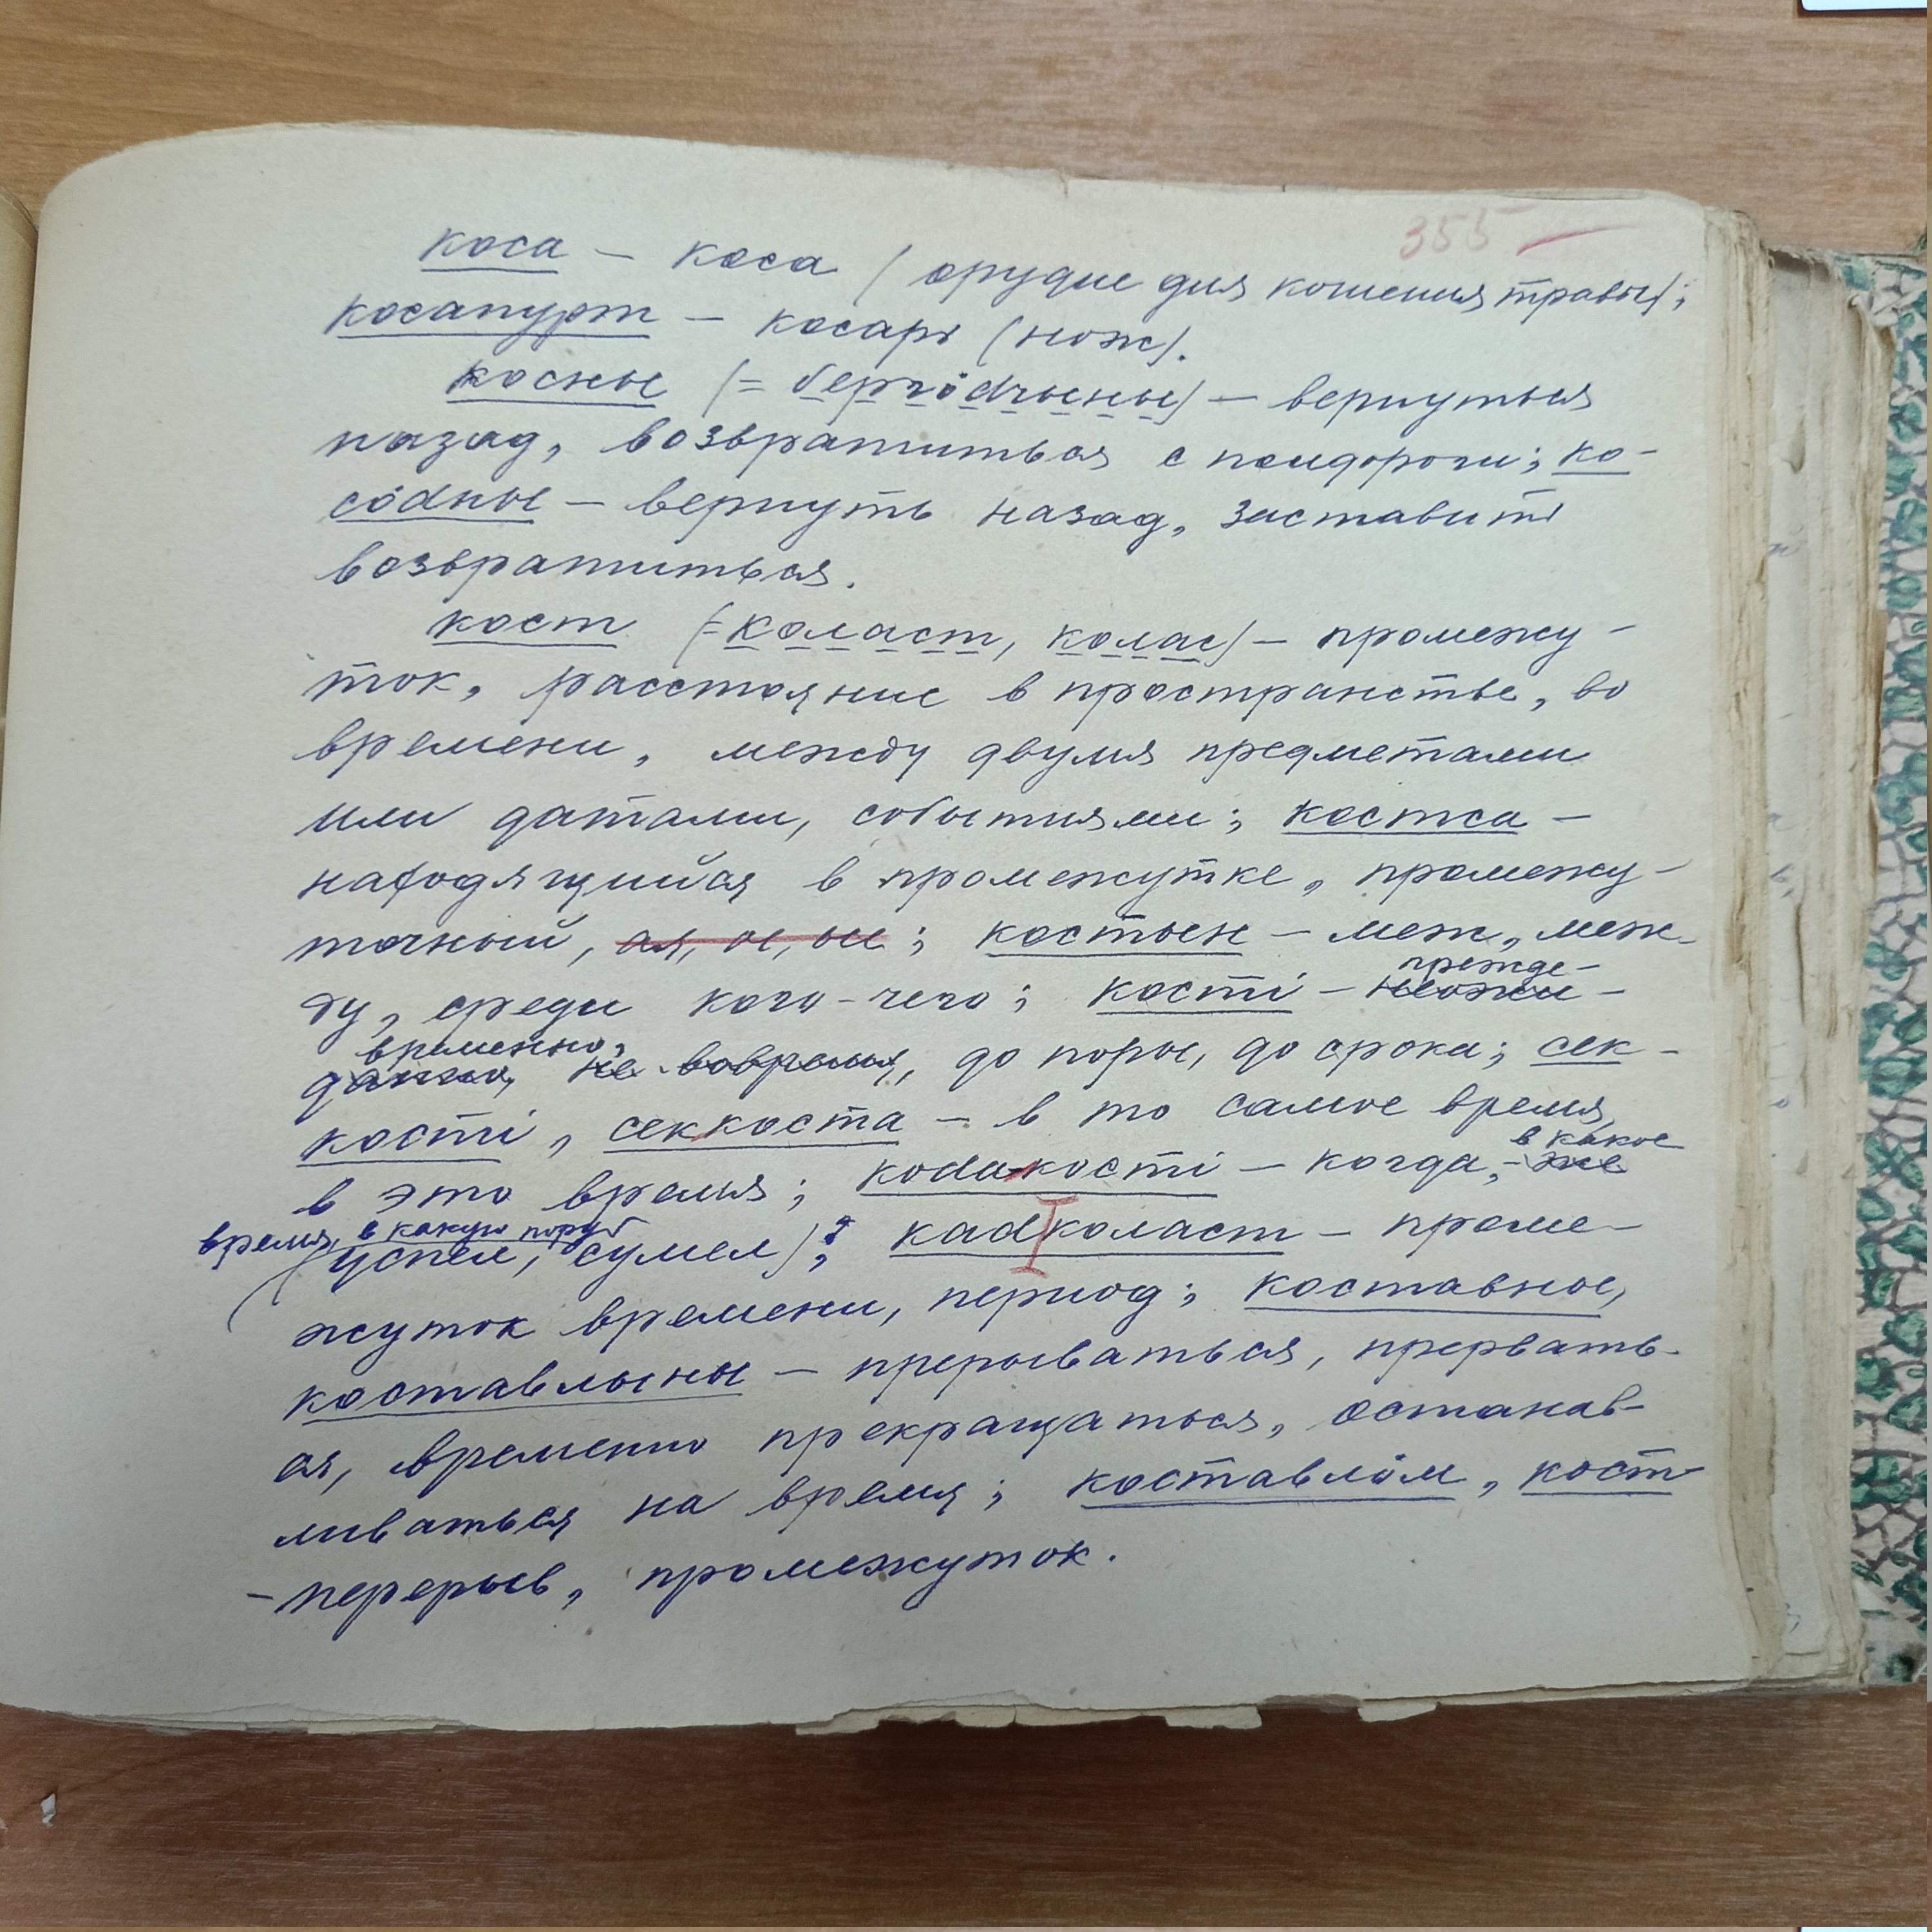 355
коса – коса (орудие для кошения травы);
косапурт – косарь (нож).
косны (= бергӧдчыны) – вернуться
назад, возвратиться с полдороги; ко-
сӧдны – вернуть назад, заставить
возвратиться.
кост (= коласт, колас) – промежу-
ток, расстояние в пространстве, во
времени, между двумя предметами
или датами, событиями; костса –
находящийся в промежутке, промежу-
точный, ая, ое, ые; костын – меж, меж-
прежде-
ду, среди кого-чего; кості – неожи-
временно,
данно, не вовремя, до поры, до срока; сек-
кості, секкоста – в то самое время,
в какое
в это время; кодакості – когда, – же
время, в какую пору
(успел, сумел); кадколаст – проме-
жуток времени, период; коставны,
коставлыны – прерываться, прервать-
ся, временно прекращаться, останав-
ливаться на время; коставлӧм, кост
– перерыв, промежуток.